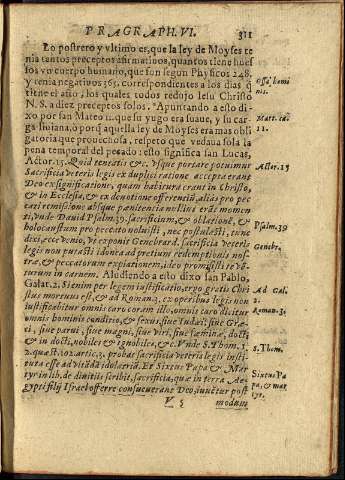 PRAGRAPH. VI. 311
Lo postrero y vltimo es, que la ley de Moyses te
nia tantos preceptos afirmatiuos, quantos tiene huef
sos vn cuerpo humano, que son segun Physicos 248.
y tenia negatiuos 365. correspondientes a los dias q̃
tiene el año, los quales todos redujo Iesu Christo
N. S. a diez preceptos solos. Apuntando a esto di-
xo por san Mateo 11. que su yugo era suaue, y su car
ga liuiana, o porq̃ aquella ley de Moyses era mas obli
gatoria que prouechosa, respeto que vedaua sola la
pena temporal del pecado: esto significa san Lucas,
Actor. 15. Quid tentatis &c. vsque portare potuimus
Sacrificia veteris legis ex duplici ratione accepta erant
Deo ex significatione, quam habitura erant in Christo,
& in Ecclesia, & ex deuotione offerentiũ, alias pro pec
cati remissione absque pænitentia nullius erãt momen
ti, vnde Dauid Psalm. 39. sacrificium, & oblatione, &
holocaustum pro peccato noluisti, nec postulasti, tunc
dixi, ecce venio, vt exponit Genebrard. sacrificia veteris
legis non putasti idonea ad pretium redemptionis nos-
træ, & peccatorum expiationem, ideo promisisti te vē-
turum in carnem. Aludiendo a esto dixo san Pablo,
Galat. 2. Si enim per legem iustificatio, ergo gratis Chri
stus mortuus est, & ad Roman. 3. ex operibus legis non
iustificabitur omnis caro coram illo, omnis caro dicitur
omnis hominis conditio, & sexus, siue Iudæi, siue Græ-
ci, siue parui, siue magni, siue viri, siue fæminæ, docti
& in docti, nobiles & ignobiles, &c. Vnde S. Thom. 1.
2. quæst. 102. artic. 3. probat sacrificia veteris legis insti-
tuta esse ad vitãdã idolatriã. Et Sixtus Papa & Mar
tyr in lib. de diuitiis scribit, sacrificia, quæ in terra Ae-
gypti filij Israel offerre consueuerant Deo, iuuctur post
V 5 modum
Ossa homi
nis.
Matt. ca.
11.
Actor. 15
Psalm. 39
Genebr.
Ad Gal.
2.
Roman. 3.
S. Thom.
Sixtus Pa
pa, & mar
tyr.